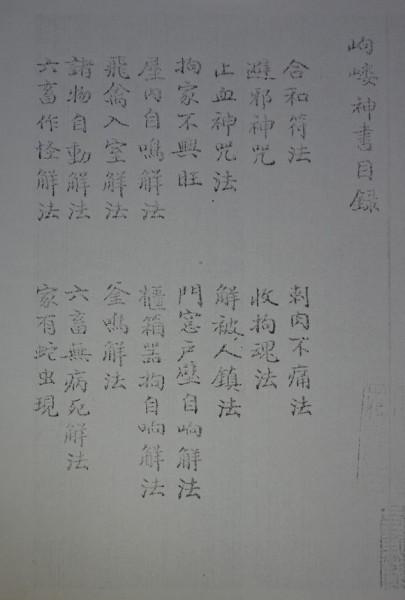 岣嶁神書目録
合和符法
刺肉不痛法
避邪神咒
收拘魂法
止血神咒法
解被人鎮法
拘家不興旺
門窓戸壁自响解法
屋内自鳴解法
櫃箱器拘自响解法
飛禽入室解法
釜鳴解法
諸物自動解法
六畜無病死解法
六畜作怪解法
家有蛇虫現